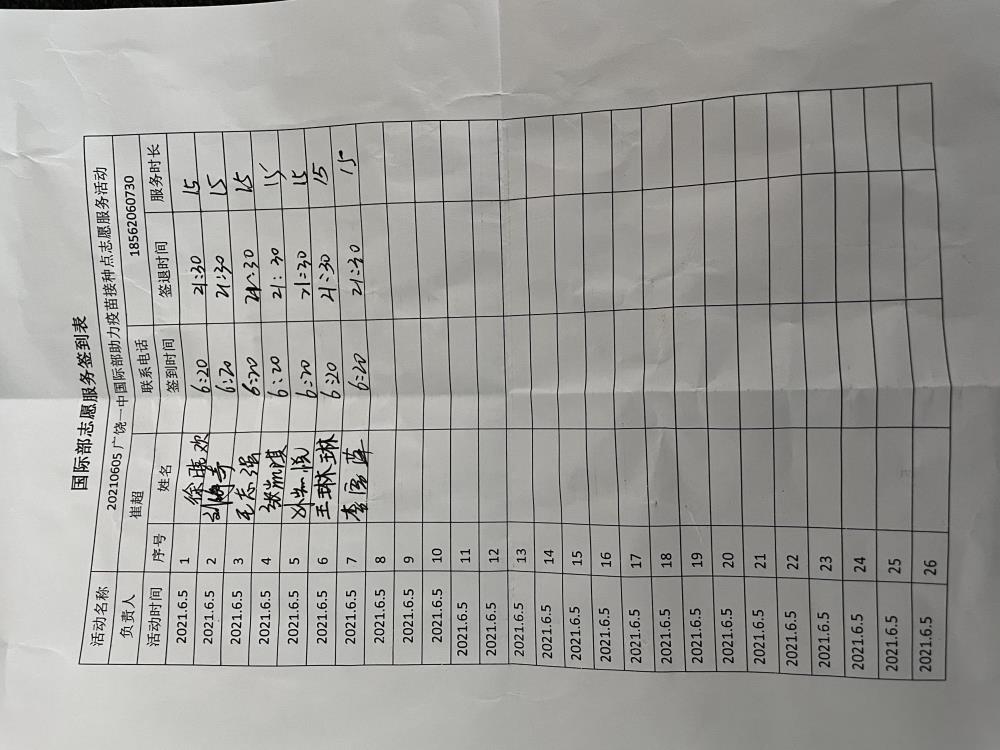 国际部志愿服务签到表
活动名称 20210605广饶一中国际部助力疫苗接种点志愿服务活动
负责人 崔超 联系电话 18562060730
活动时间 序号 姓名 签到时间 签退时间 服务时长
2021.6.5 1 徐晓欢 6:20 21:30 15
2021.6.5 2 6:20 21:30 15
2021.6.5 3 毛志强 6:20 21:30 15
2021.6.5 4 6:20 21:30 15
2021.6.5 5 6:20 21:30 15
2021.6.5 6 王琳琳 6:20 21:30 15
2021.6.5 7 6:20 21:30 15
2021.6.5 8
2021.6.5 9
2021.6.5 10
2021.6.5 11
2021.6.5 12
2021.6.5 13
2021.6.5 14
2021.6.5 15
2021.6.5 16
2021.6.5 17
2021.6.5 18
2021.6.5 19
2021.6.5 20
2021.6.5 21
2021.6.5 22
2021.6.5 23
2021.6.5 24
2021.6.5 25
2021.6.5 26